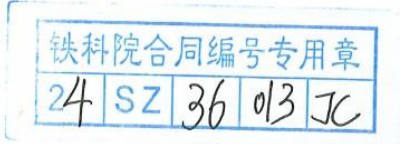 铁科院合同编号专用章
24 SZ 36 013 JC